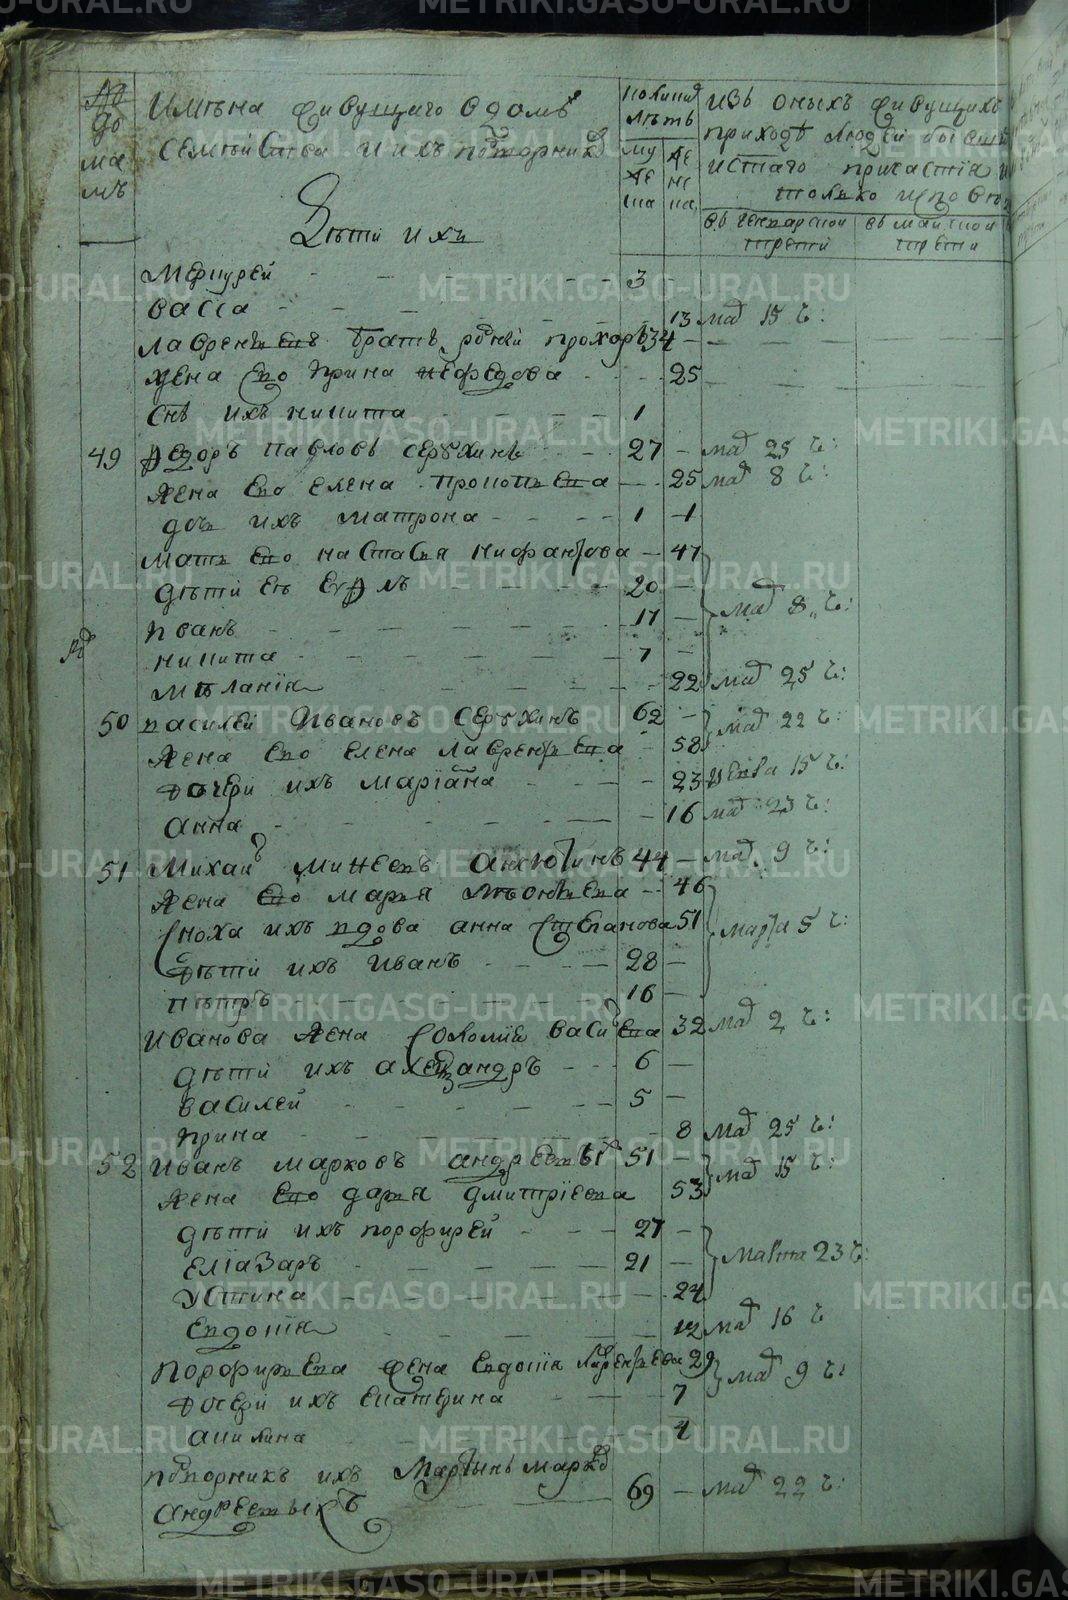 METRIKI.GASO-URAL.RU
№ домамъ
Имѣна живущаго в домѣ
семѣйства и ихъ подворниковъ
коликихъ лѣтъ
мужеска
женска
изъ оныхъ живущихъ
приходѣ людей бы
истаго причастія
только исповѣд
въ генварской трети
въ майской трети
Дѣти ихъ
Меркурей 3
васса 13 маія 15 ч:
лаврентьевъ братъ родной прохоръ 34
жена ево ирина нефедова 25
снъ ихъ никита 1
49 Ѳедоръ павловъ серухинъ 27 маія 25 ч:
жена ево елена прокопьева 25 маія 8 ч:
дочь ихъ матрона 1
мать ево настасья нифантова 47
дѣти еѣ 20
иванъ 17 маія 8 ч:
никита 7
меланія 22 маія 25 ч:
50 василей ивановъ серухинъ 62 маія 22 ч:
жена ево елена лаврентьева 58
дочери ихъ маріамна 23 15 ч:
анна 16 маія 23 ч:
51 Михаилъ минеевъ 44 маія 9 ч:
жена ево марья леонтьева 46
сноха ихъ вдова анна степанова 51 марта 5 ч:
дѣти ихъ иванъ 28
петръ 16
иванова жена соломія васильева 32 маія 2 ч:
дѣти ихъ александръ 6
василей 5
ирина 8 маія 25 ч:
52 иванъ марковъ андреевыхъ 51 маія 15 ч:
жена ево дарья дмитріева 53
дѣти ихъ порфирей 27
еліазаръ 21 марта 23 ч:
устина 24
евдокія 12 маія 16 ч
порфирьева жена евдокія лаврентьева 29 маія 9 ч:
дочери ихъ екатерина 7
акилина 4
подворникъ ихъ мартынъ марковъ
андреевыхъ 69 маія 22 ч: